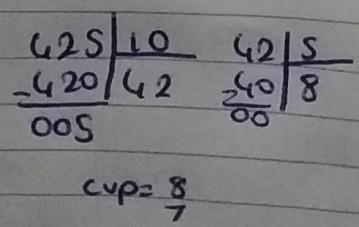 425 10 42 5
-420 42 -40 8
005 00
cup= 8
7